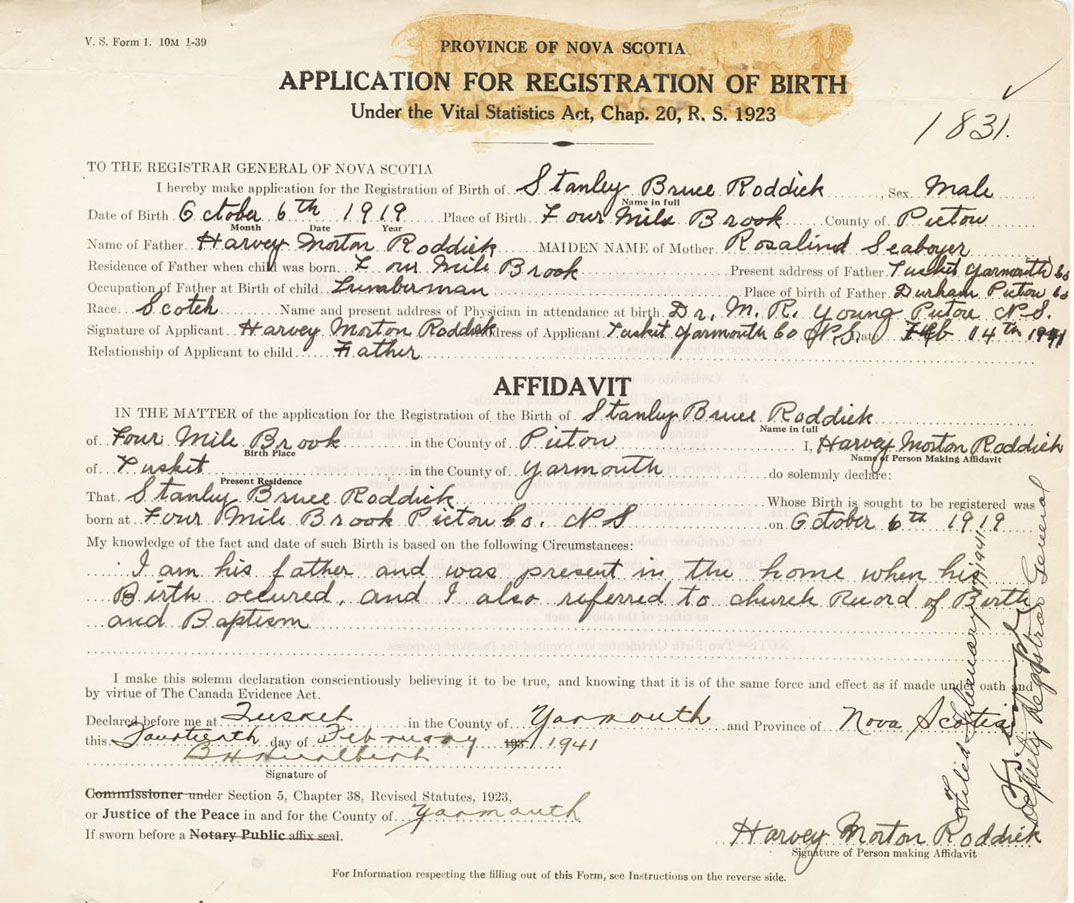 V. S. Form 1. 10M 1-39
PROVINCE OF NOVA SCOTIA
APPLICATION FOR REGISTRATION OF BIRTH
Under the Vital Statistics Act, Chap. 20, R. S. 1923
1831.
TO THE REGISTRAR GENERAL OF NOVA SCOTIA
I hereby make application for the Registration of Birth of Stanley Bruce Roddick, Sex Male
Name in full
Date of Birth October 6th 1919 Place of Birth Four Mile Brook County of Pictou
Month Date Year
Name of Father Harvey Morton Roddick MAIDEN NAME of Mother Rosalind Seaboyer
Residence of Father when child was born Four Mile Brook Present address of Father Tusket Yarmouth Co
Occupation of Father at Birth of child Lumberman Place of birth of Father Durham Pictou Co
Race Scotch Name and present address of Physician in attendance at birth Dr. M. R. Young Pictou N.S.
Signature of Applicant Harvey Morton Roddick Address of Applicant Tusket Yarmouth Co N.S. Date Feb 14th 1941
Relationship of Applicant to child Father
AFFIDAVIT
IN THE MATTER of the application for the Registration of the Birth of Stanley Bruce Roddick
Name in full
of Four Mile Brook in the County of Pictou I, Harvey Morton Roddick
Birth Place Name of Person Making Affidavit
of Tusket in the County of Yarmouth do solemnly declare:
Present Residence
That Stanley Bruce Roddick Whose Birth is sought to be registered was
born at Four Mile Brook Pictou Co. N S on October 6th 1919
My knowledge of the fact and date of such Birth is based on the following Circumstances:
I am his father and was present in the home when his
Birth occured, and I also referred to church Record of Birth
and Baptism
I make this solemn declaration conscientiously believing it to be true, and knowing that it is of the same force and effect as if made under oath and
by virtue of The Canada Evidence Act.
Declared before me at Tusket in the County of Yarmouth and Province of Nova Scotia
this Fourteenth day of February 193 1941
Signature of
Commissioner under Section 5, Chapter 38, Revised Statutes, 1923,
or Justice of the Peace in and for the County of Yarmouth
If sworn before a Notary Public affix seal.
Harvey Morton Roddick
Signature of Person making Affidavit
For Information respecting the filling out of this Form, see Instructions on the reverse side.
Filed 1941
Deputy Registrar General